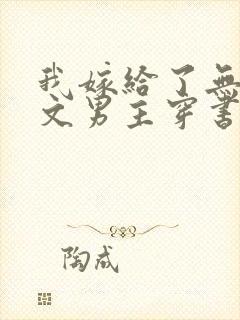 我嫁给了無
文男主穿書
陶成